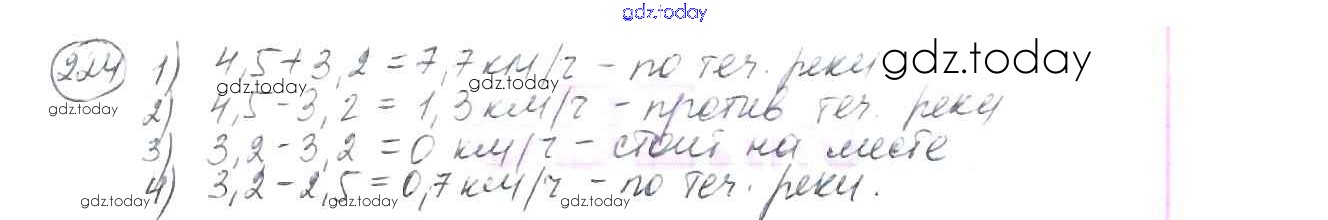 gdz.today
224 1) 4,5+3,2=7,7км/г - по теч. реки gdz.today
gdz.today gdz.today gdz.today
2) 4,5-3,2=1,3км/г - против теч. реки
3) 3,2-3,2=0 км/г - стоит на месте
4) 3,2-2,5=0,7км/г - по теч. реки.
gdz.today gdz.today gdz.today gdz.today